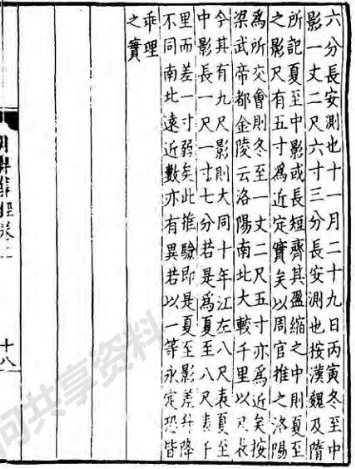 六分長安測也十一月二十九日丙寅冬至中
影一丈二尺六寸三分長安測也按漢魏及隋
所記夏至中影或長短齊其盈縮之中則夏至
之影尺有五寸為近定實矣以周官推之洛陽
為所交會則冬至一丈二尺五寸亦為近矣按
梁武帝都金陵云洛陽南北大較千里以尺表
令其有九尺影則大同十年江左八尺表夏至
中影長一尺一寸七分若是為夏至八尺表千
里而差一寸弱矣此推驗即是夏至影差升降
不同南北遠近數亦有異若以一等永定恐皆
乖理之實
十八
共享资料